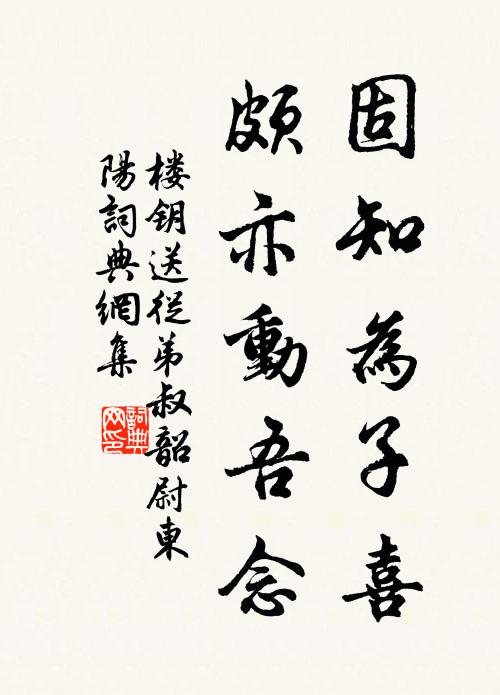 固知為子喜
頗亦動吾念
楼钥送從弟叔韶尉東
陽詞典網集
詞典
网印